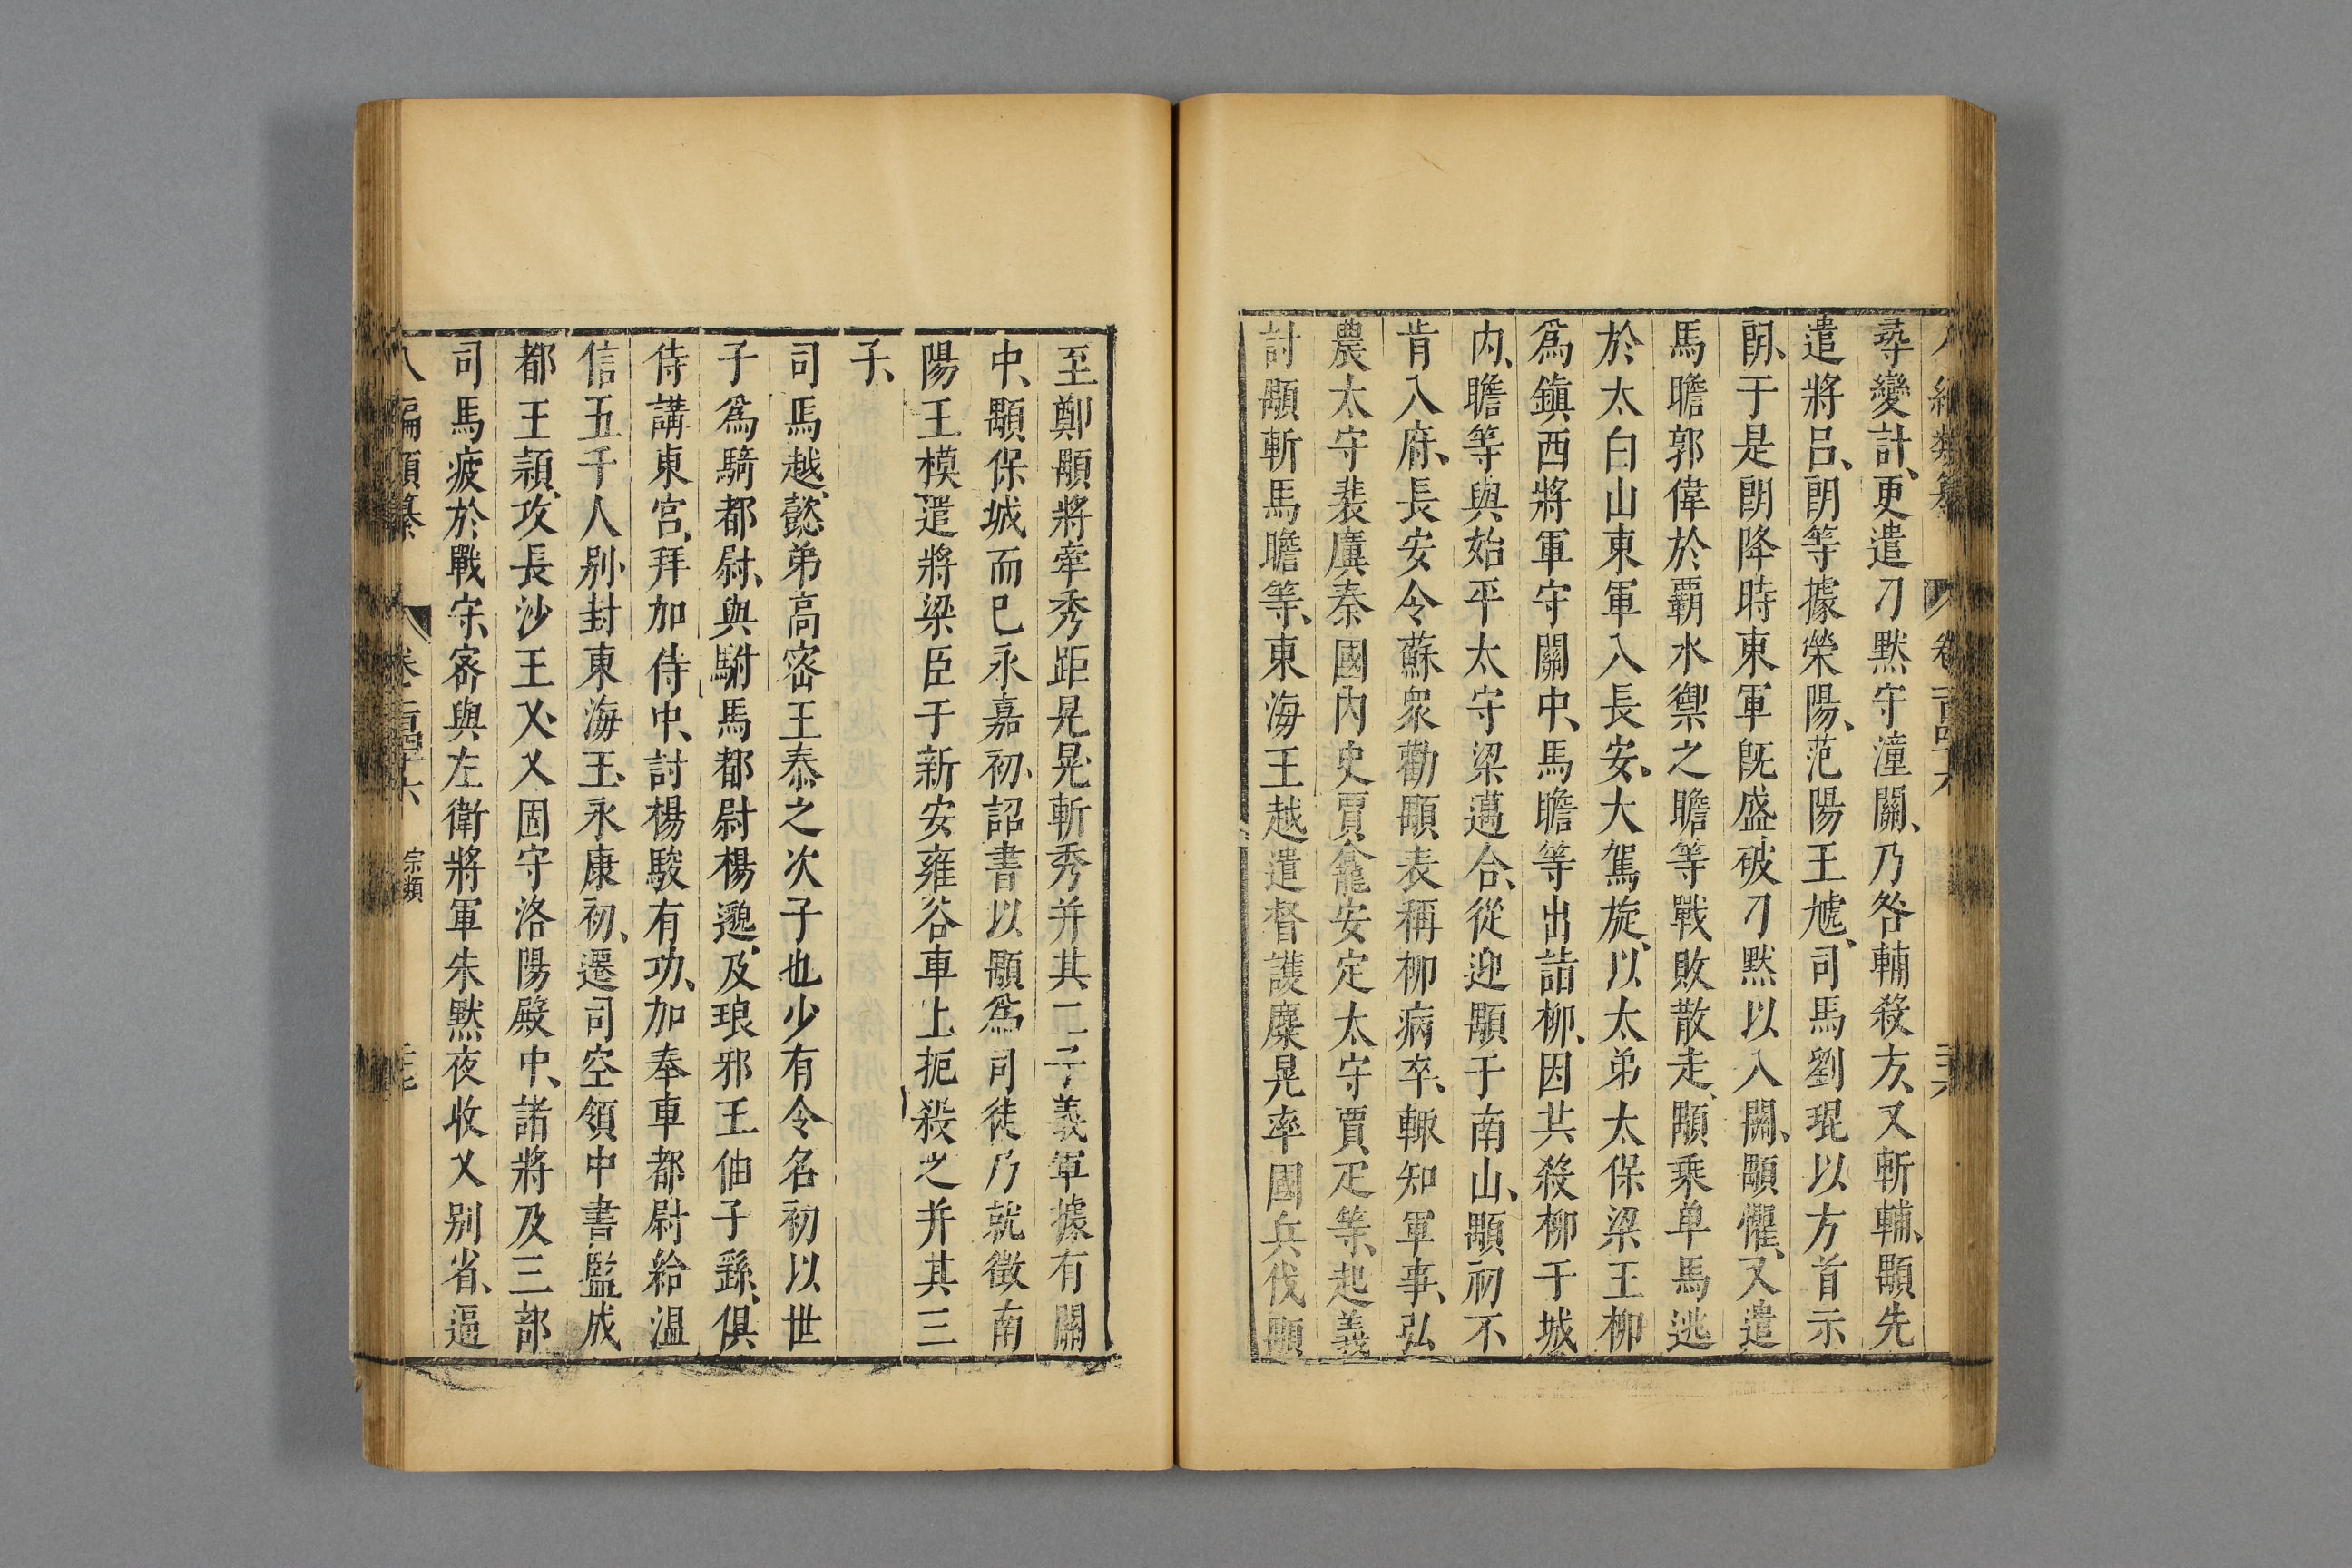 尋變計、更遣刁黙守潼關、乃咎輔殺方、又斬輔、顒先
遣將呂、朗等據滎陽、范陽王虓、司馬劉琨以方首示
朗、于是朗降時東軍旣盛破刁黙以入關、顒懼、又遣
馬瞻郭偉於霸水禦之瞻等戰敗散走、顒乘单馬逃
於太白山東軍入長安、大駕旋、以太弟太保梁王柳
爲鎮西將軍守關中、馬瞻等出詣柳、因共殺柳于城
內、瞻等與始平太守梁邁合、從迎顒于南山、顒初不
肯入府、長安令蘇衆勸顒表稱柳病卒、輒知軍事、弘
農太守裴廙秦國內史賈龕安定太守賈疋等、起義
討顒斬馬瞻等、東海王越遣督護麋晃率國兵伐顒
至鄭顒將牽秀距晃晃斬秀并其二子義軍據有關
中、顒保城而已永嘉初、詔書以顒爲司徒乃就徵南
陽王模遣將梁臣于新安雍谷車上扼殺之并其三
子、
司馬越、懿弟高密王泰之次子也少有令名初以世
子爲騎都尉、與駙馬都尉楊邈、及琅邪王伷子繇、俱
侍講東宮、拜加侍中、討楊駿有功、加奉車都尉給温
信五千人别封東海王、永康初、遷司空領中書監成
都王穎、攻長沙王乂、乂固守洛陽殿中、諸將及三部
司馬疲於戰守、密與左衛將軍朱黙夜收乂別省、逼
八編類纂 卷二百四十六 宗類